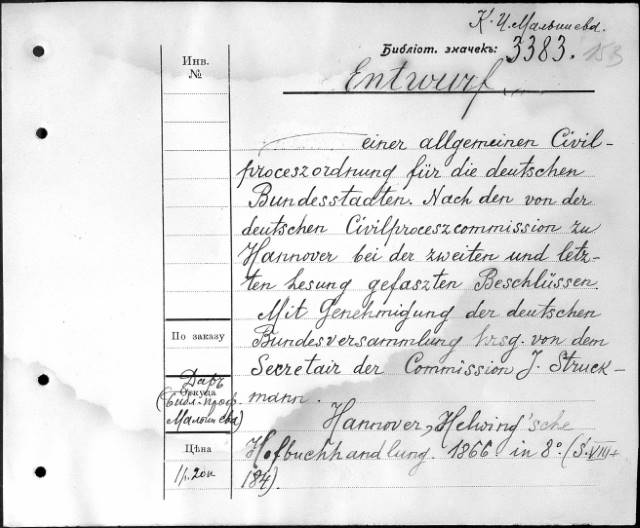 К. И. Малышева.
Библіот. значекъ: 3383. 153
Инв.
№
Entwurf...
einer allgemeinen Civil-
proceszordnung für die deutschen
Bundesstaaten. Nach den von der
deutschen Civilproceszcommission zu
Hannover bei der zweiten und letz-
ten Lesung gefaszten Beschlüssen.
Mit Genehmigung der deutschen
Bundesversammlung hrsg. von dem
Secretair der Commission J. Struck-
mann.
Hannover, Helwing'sche
Hofbuchhandlung. 1866. in 8º. (S. VIII+
184).
По заказу
Даръ
Откуда
(библ. проф.
Малышева)
Цѣна
1 р. 20 к